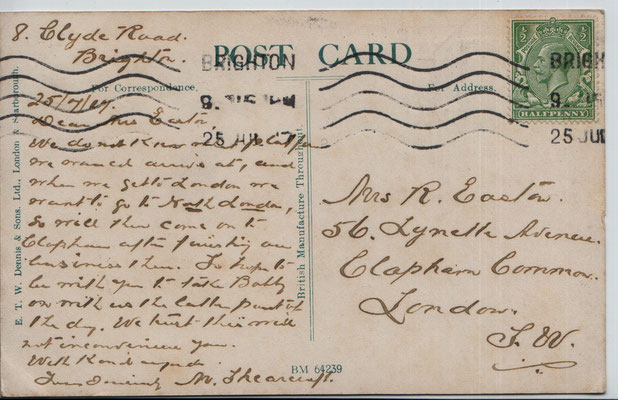 8. Clyde Road.
Brighton.
POST CARD
BRIGHTON
For Correspondence.
For Address.
25 JUL 17
BRIGH
25 JUL
½
½
HALFPENNY
25/7/17.
Dear Mrs Easton,
We do not know
we arrive at, and
when we get to London we
want to go to North London,
so will then come on to
Clapham after finishing our
business there. So hope to
be with you to take Bobby
on with us the latter part of
the day. We trust this will
not inconvenience you.
With kind regards
Yours Sincerely M. Shearcroft.
Mrs R. Easton.
56. Lynette Avenue.
Clapham Common.
London.
S. W.
E. T. W. Dennis & Sons. Ltd., London & Scarborough.
British Manufacture Throughout.
BM 64239